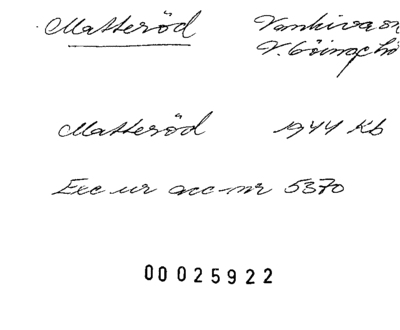 Matteröd Vankiva sn
V. Göinge hd
Matteröd 1944 Kb
Exc ur acc-nr 5370
00 025922